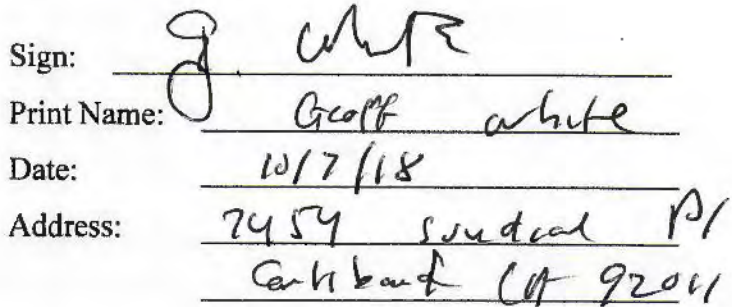 Sign: g. white
Print Name: Geoff white
Date: 10/7/18
Address: 7454 sundial Pl
Carlsbad CA 92011